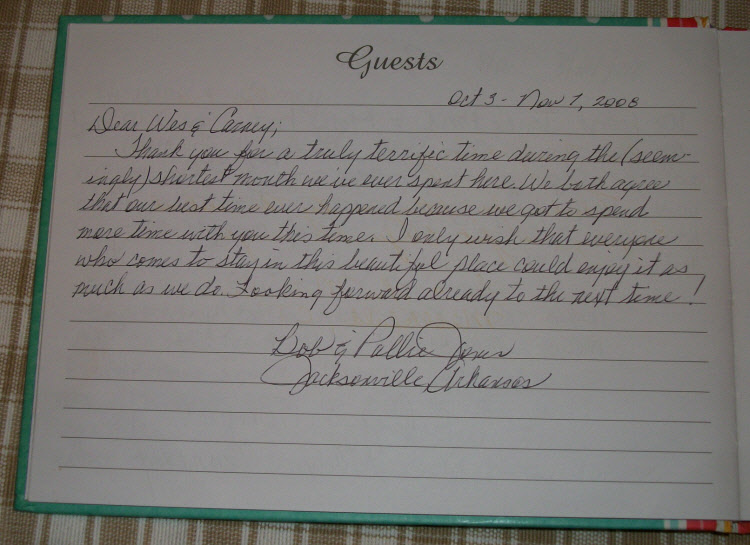 Guests
Oct 3 - Nov 7, 2008
Dear Wes & Carney;
Thank you for a truly terrific time during the (seem-
ingly) shortest month we've ever spent here. We both agree
that our best time ever happened because we got to spend
more time with you this time. I only wish that everyone
who comes to stay in this beautiful place could enjoy it as
much as we do. Looking forward already to the next time!
Bob & Pallie Jones
Jacksonville Arkansas